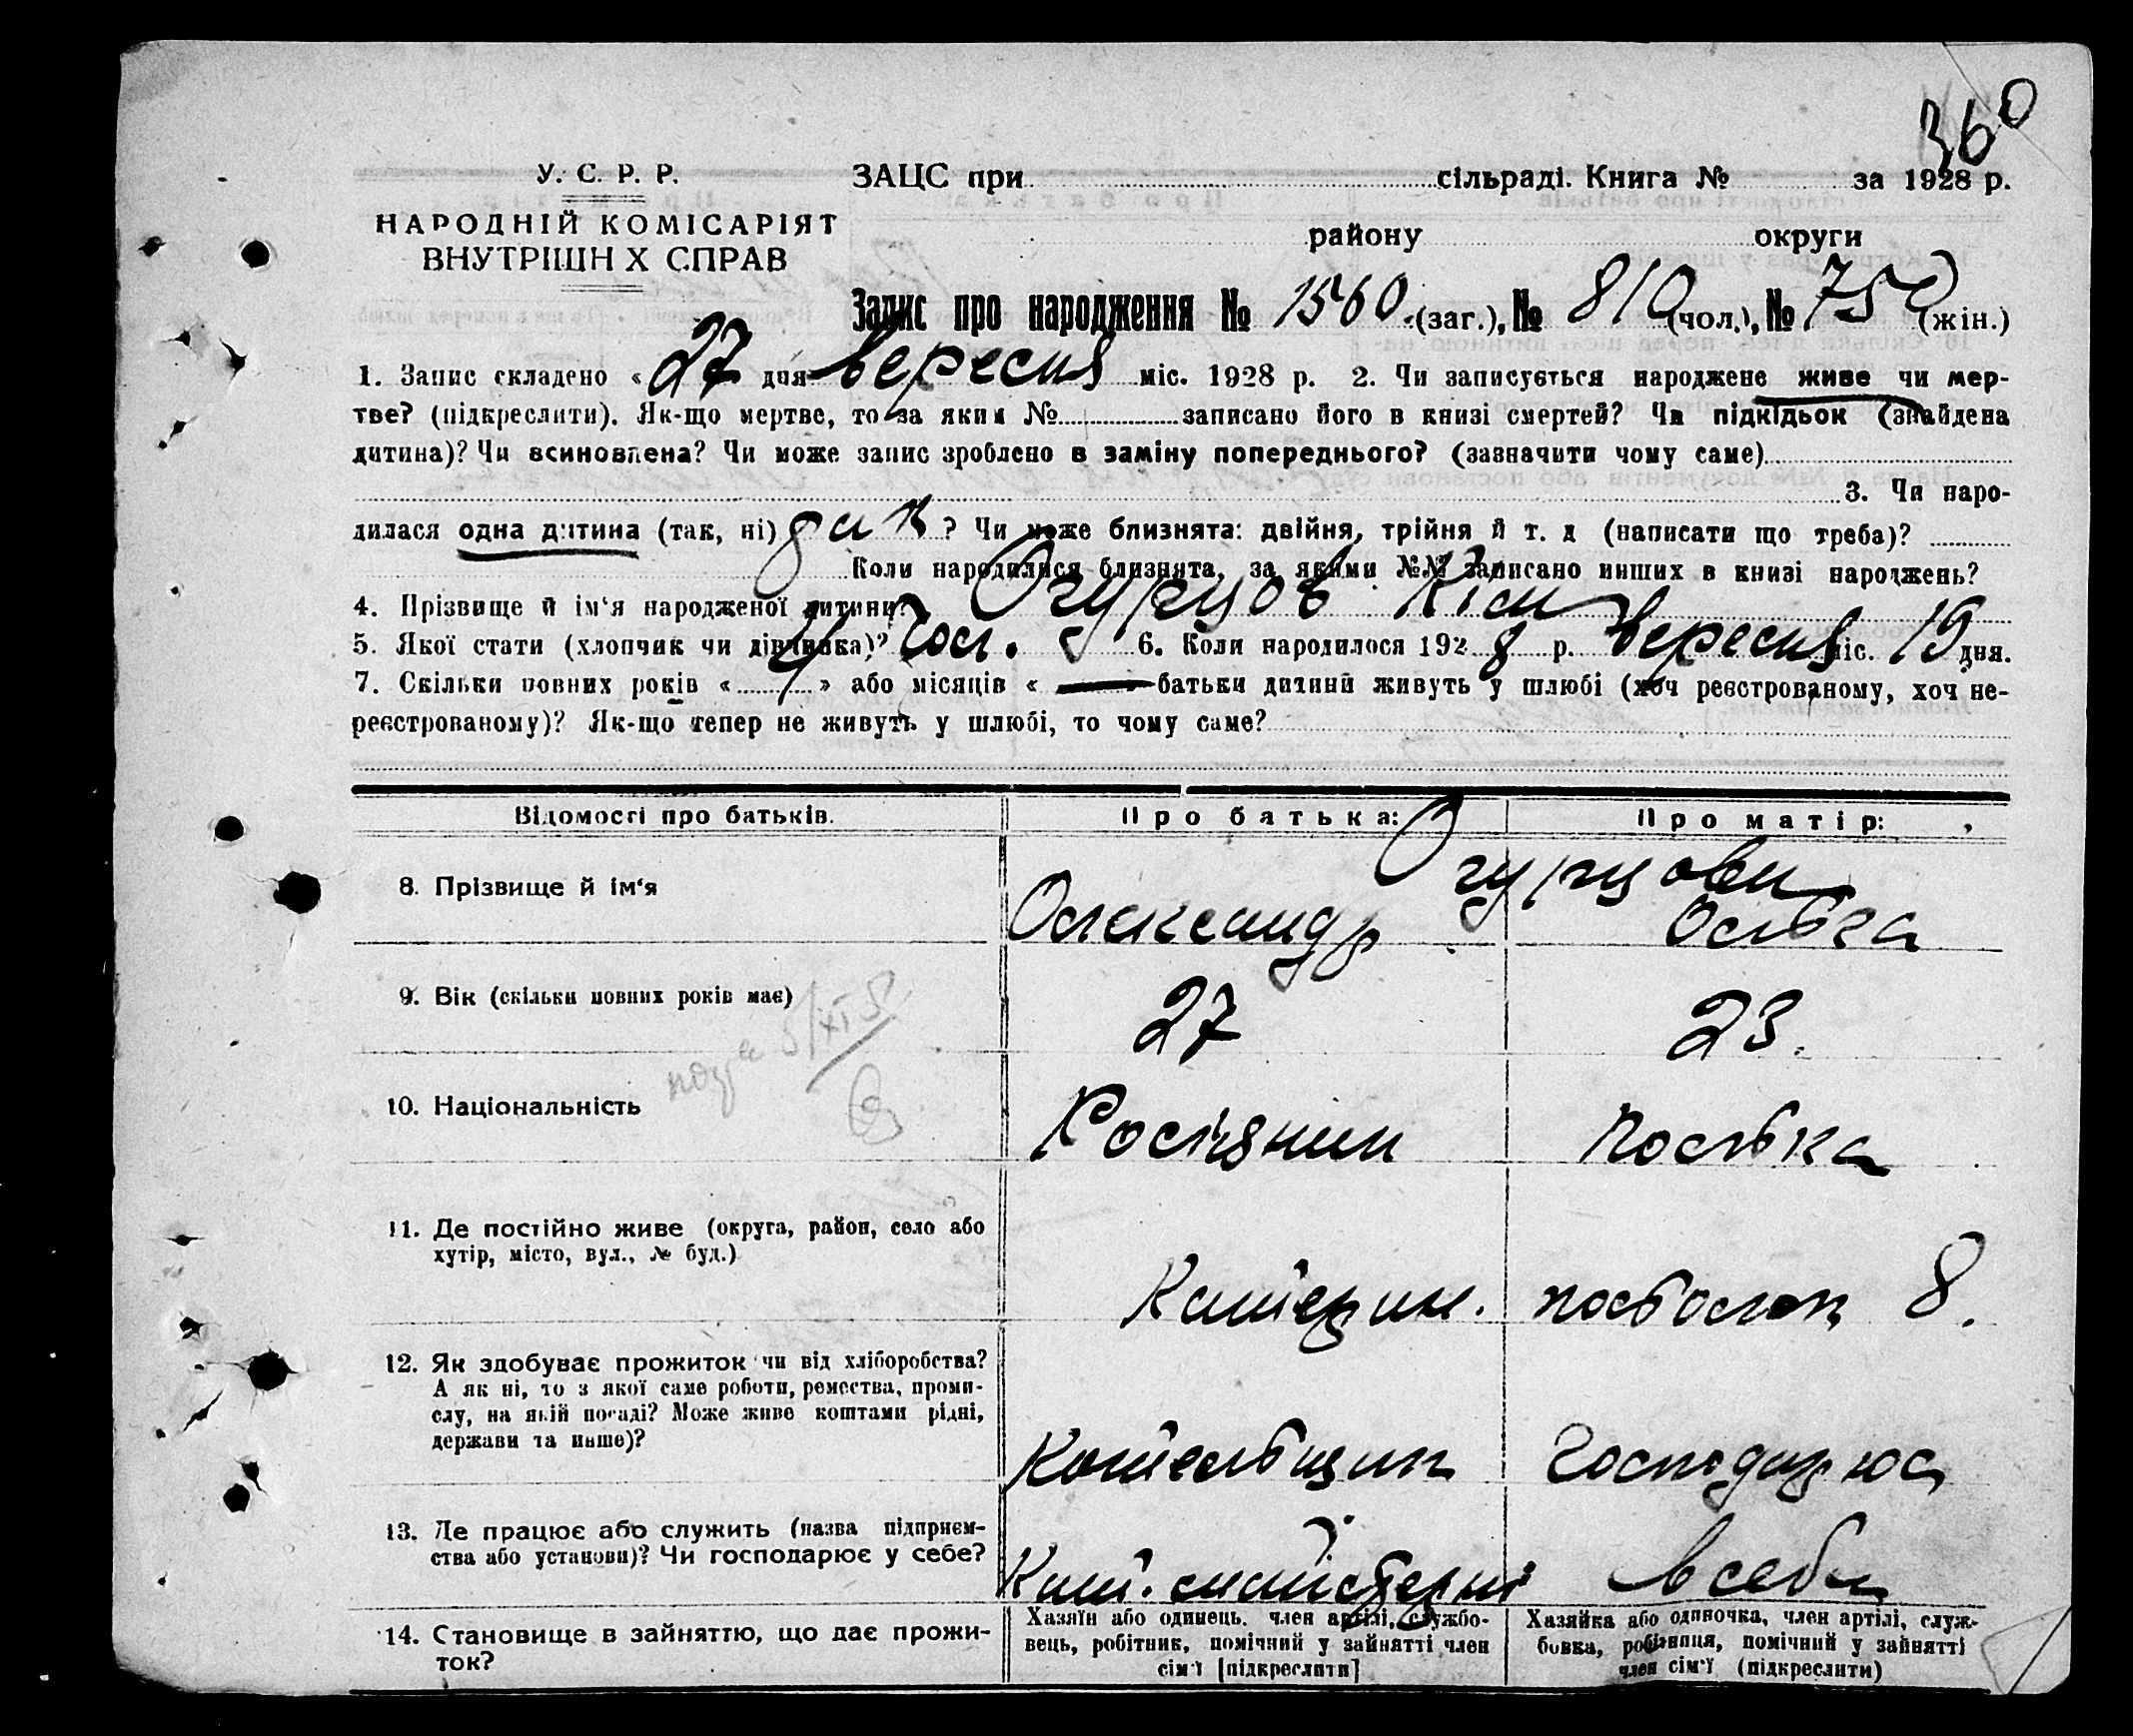 360
У. С. Р. Р.
НАРОДНІЙ КОМІСАРІЯТ
ВНУТРІШН Х СПРАВ
ЗАЦС при сільраді. Книга № за 1928 р.
району округи
Запис про народження № 1560 (заг.), № 810 (чол.), № 750 (жін.)
1. Запис складено « 27 дня вересня міс. 1928 р. 2. Чи записується народжене живе чи мер-
тве? (підкреслити). Як-що мертве, то за яким № записано його в книзі смертей? Чи підкідьок (знайдена
дитина)? Чи всиновлена? Чи може запис зроблено в заміну попереднього? (зазначити чому саме)
3. Чи наро-
дилася одна дитина (так, ні) ? Чи може близнята: двійня, трійня й т. д (написати що треба)?
Коли народилися близнята, за якими №№ записано инших в книзі народжень?
4. Прізвище й ім'я народженої дитини? Огурцов Кім
5. Якої стати (хлопчик чи дівчинка)? Чол. 6. Коли народилося 1928 р. вересня міс. 19 дня.
7. Скільки повних років « 4 » або місяців « батьки дитини живуть у шлюбі (хоч реєстрованому, хоч не-
реєстрованому)? Як-що тепер не живуть у шлюбі, то чому саме?
Відомості про батьків. Про батька: Про матір:
Огурцови
8. Прізвище й ім'я Олександр Ольга
9. Вік (скільки повних років має) 27 23.
10. Національність Росіянин
11. Де постійно живе (округа, район, село або
хутір, місто, вул., № буд.)
Катерин. 8.
12. Як здобуває прожиток чи від хліборобства?
А як ні, то з якої саме роботи, ремества, проми-
слу, на якій посаді? Може живе коштами рідні,
держави та инше)?
Котельщик Господарює
13. Де працює або служить (назва підприєм-
ства або установи)? Чи господарює у себе?
майстерні в себе
14. Становище в зайняттю, що дає прожи-
ток?
Хазяїн або одинець. член артілі, службо-
вець, робітник, помічний у зайнятті член
сім'ї [підкреслити]
Хазяйка або одиночка, член артілі, служ-
бовка, робітниця, помічний у зайнятті
член сім'ї (підкреслити)